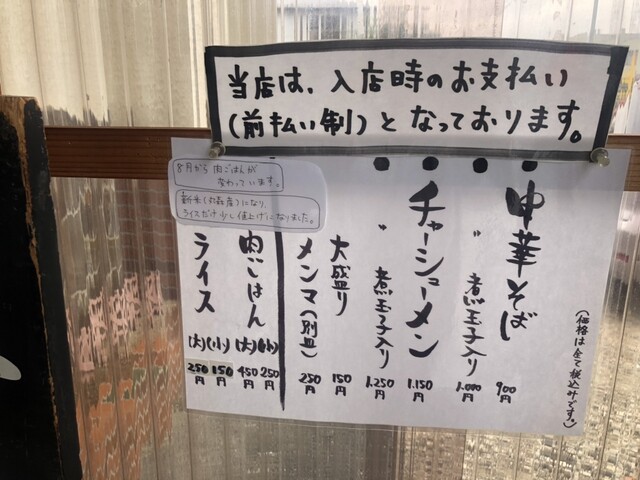 当店は、入店時のお支払い
(前払い制)となっております。
中華そば 900円
〃 煮玉子入り 1.000円
チャーシューメン 1.150円
〃 煮玉子入り 1.250円
大盛り 150円
メンマ(別皿) 250円
肉ごはん (小) 250円 (大) 450円
ライス (小) 150円 (大) 250円
(価格は全て税込みです。)
8月から 肉ごはんが
変わっています。
新米(お森産)になり、
ライスだけ少し値上げになりました。